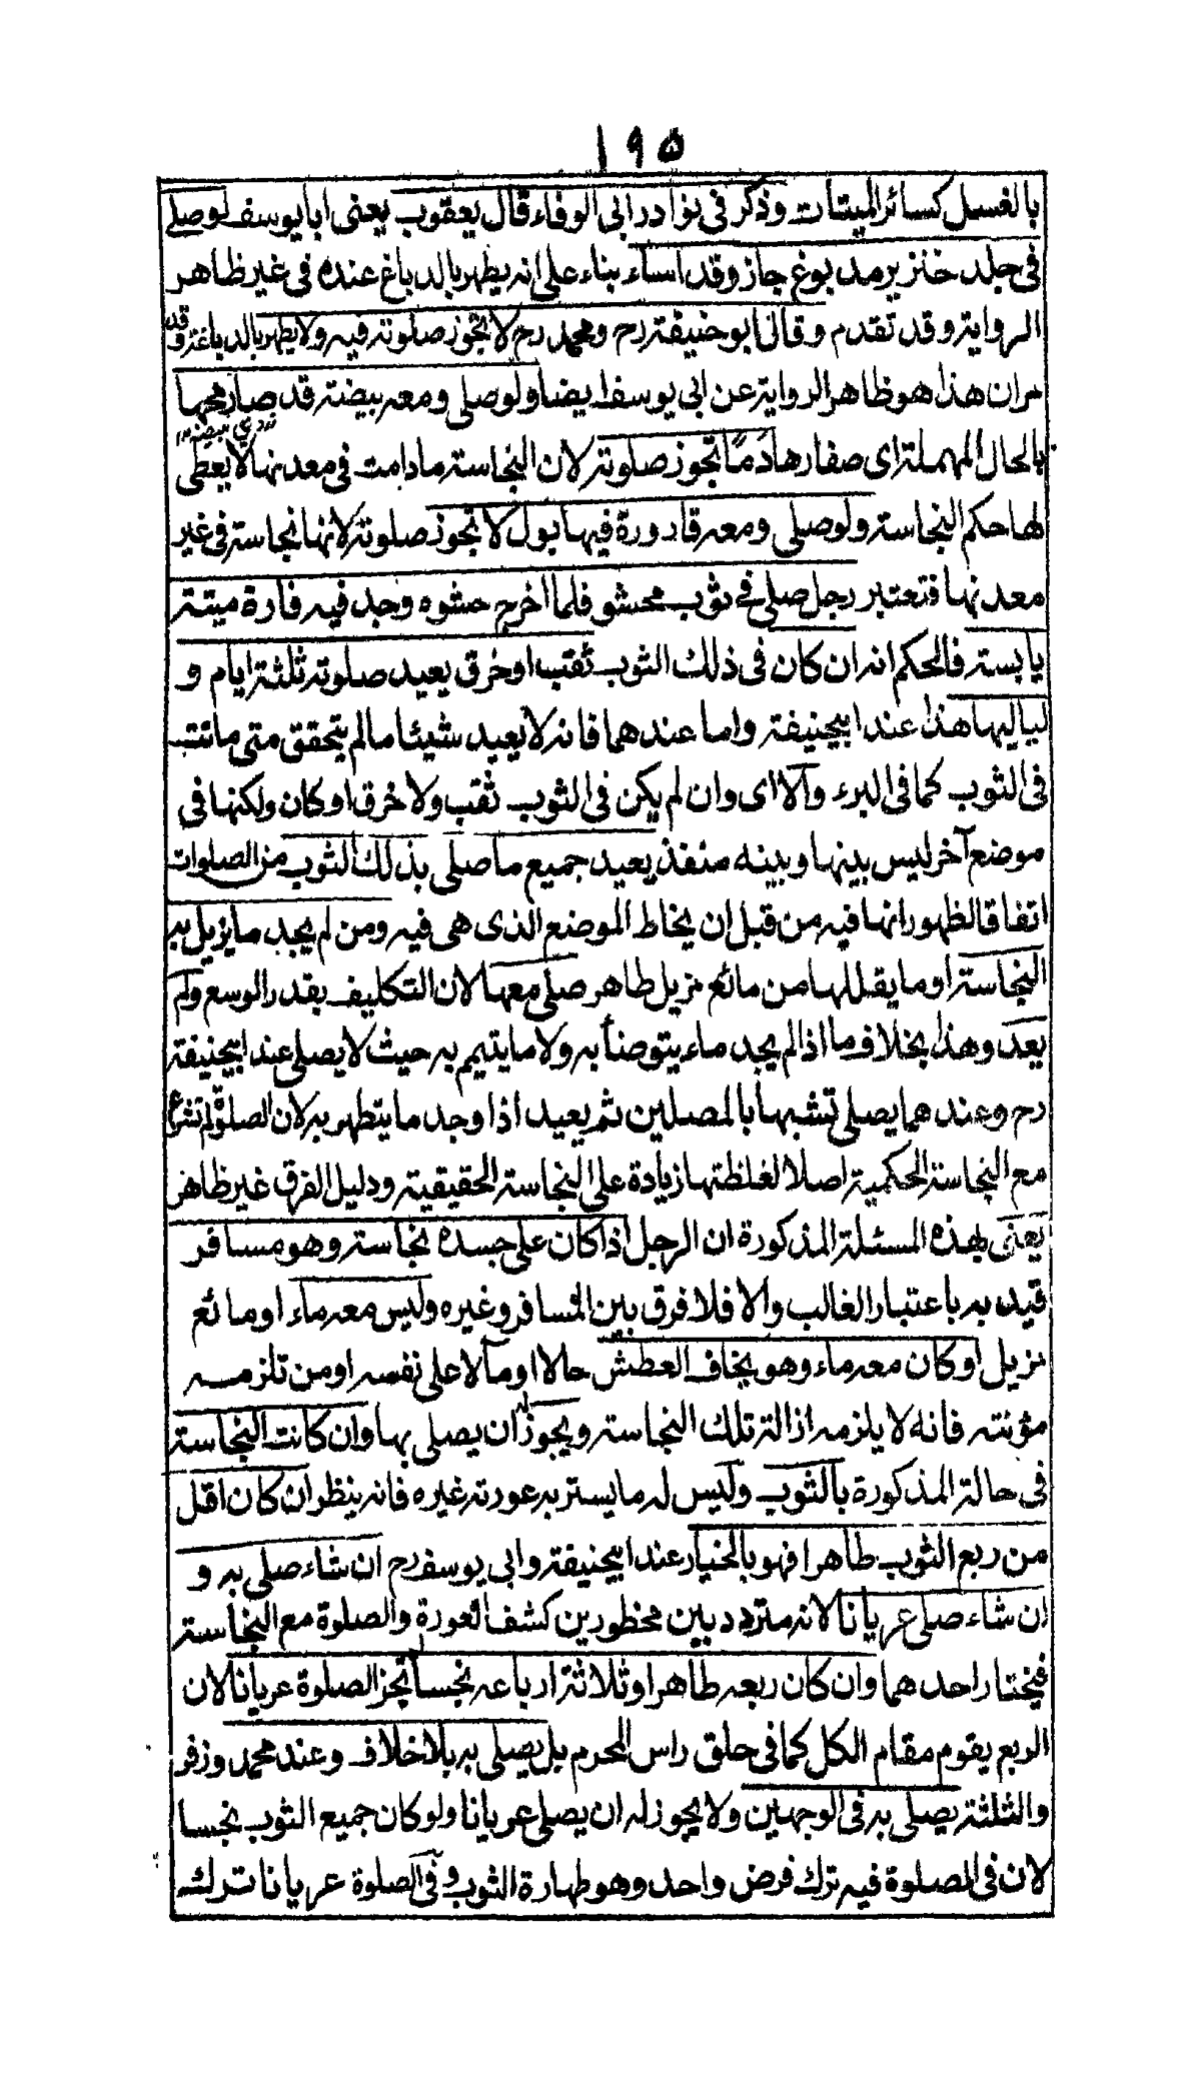 ١٩٥
بالغسل كسائر الميتات وذكر فى نوادر ابى الوفاء قال يعقوب يعنى ابا يوسف لو صلى
فى جلد خنزير مدبوغ جاز وقد اساء بناء على انه يطهر بالدباغ عنده فى غير ظاهر
الرواية وقد تقدم وقال ابو حنيفة رح ومحمد رح لا تجوز صلوته فيه ولا يطهر بالدباغة وقد
مر ان هذا هو ظاهر الرواية عن ابى يوسف ايضا ولو صلى ومعه بيضة قد صار محها
بالحال المهملة اى صفارها دمًا تجوز صلوته لان النجاسة ما دامت فى معدنها لا يعطى
لها حكم النجاسة ولو صلى ومعه قارورة فيها بول لا تجوز صلوته لانها نجاسة فى غير
معدنها فتعتبر رجل صلى فى ثوب محشو فلما اخرج حشوه وجد فيه فارة ميتة
يابسة فالحكم انه ان كان فى ذلك الثوب ثقب او خرق يعيد صلوته ثلثة ايام و
لياليها هذا عند ابيحنيفة واما عندهما فانه لا يعيد شيئا ما لم يتحقق متى ماتت
فى الثوب كما فى البرء والا اى وان لم يكن فى الثوب ثقب ولا خرق او كان ولكنها فى
موضع آخر ليس بينها وبينه منفذ يعيد جميع ما صلى بذلك الثوب من الصلوات
اتفاقا لظهور انها فيه من قبل ان يخاط الموضع الذى هى فيه ومن لم يجد ما يزيل به
النجاسة او ما يقللها من مائع مزيل طاهر صلى معها لان التكليف بقدر الوسع ولم
يعد وهذا بخلاف ما اذا لم يجد ماء يتوضأ به ولا ما يتيمم به حيث لا يصلى عند ابيحنيفة
رح وعندهما يصلى تشبها بالمصلين ثم يعيد اذا وجد ما يتطهر به لان الصلوة لم تشرع
مع النجاسة الحكمية اصلا لغلظتها زيادة على النجاسة الحقيقية ودليل الفرق غير ظاهر
يعنى بهذه المسئلة المذكورة ان الرجل اذا كان على جسده نجاسة وهو مسافر
قيد به باعتبار الغالب والا فلا فرق بين المسافر وغيره وليس معه ماء او مائع
مزيل او كان معه ماء وهو يخاف العطش حالا او مآلا على نفسه او من تلزمه
مؤنته فانه لا يلزمه ازالة تلك النجاسة ويجوز له ان يصلى بها وان كانت النجاسة
فى حالة المذكورة بالثوب وليس له ما يستر به عورته غيره فانه ينظر ان كان اقل
من ربع الثوب طاهرا فهو بالخيار عند ابيحنيفة وابى يوسف رح ان شاء صلى به و
ان شاء صلى عريانا لانه متردد بين محظورين كشف العورة والصلوة مع النجاسة
فيختار احدهما وان كان ربعه طاهرا وثلاثة ارباعه نجسا لم تجز الصلوة عريانا لان
الربع يقوم مقام الكل كما فى حلق راس المحرم بل يصلى به بلا خلاف وعند محمد وزفر
والثلثة يصلى به فى الوجهين ولا يجوز له ان يصلى عريانا ولو كان جميع الثوب نجسا
لان فى الصلوة فيه ترك فرض واحد وهو طهارة الثوب وفى الصلوة عريانا ترك